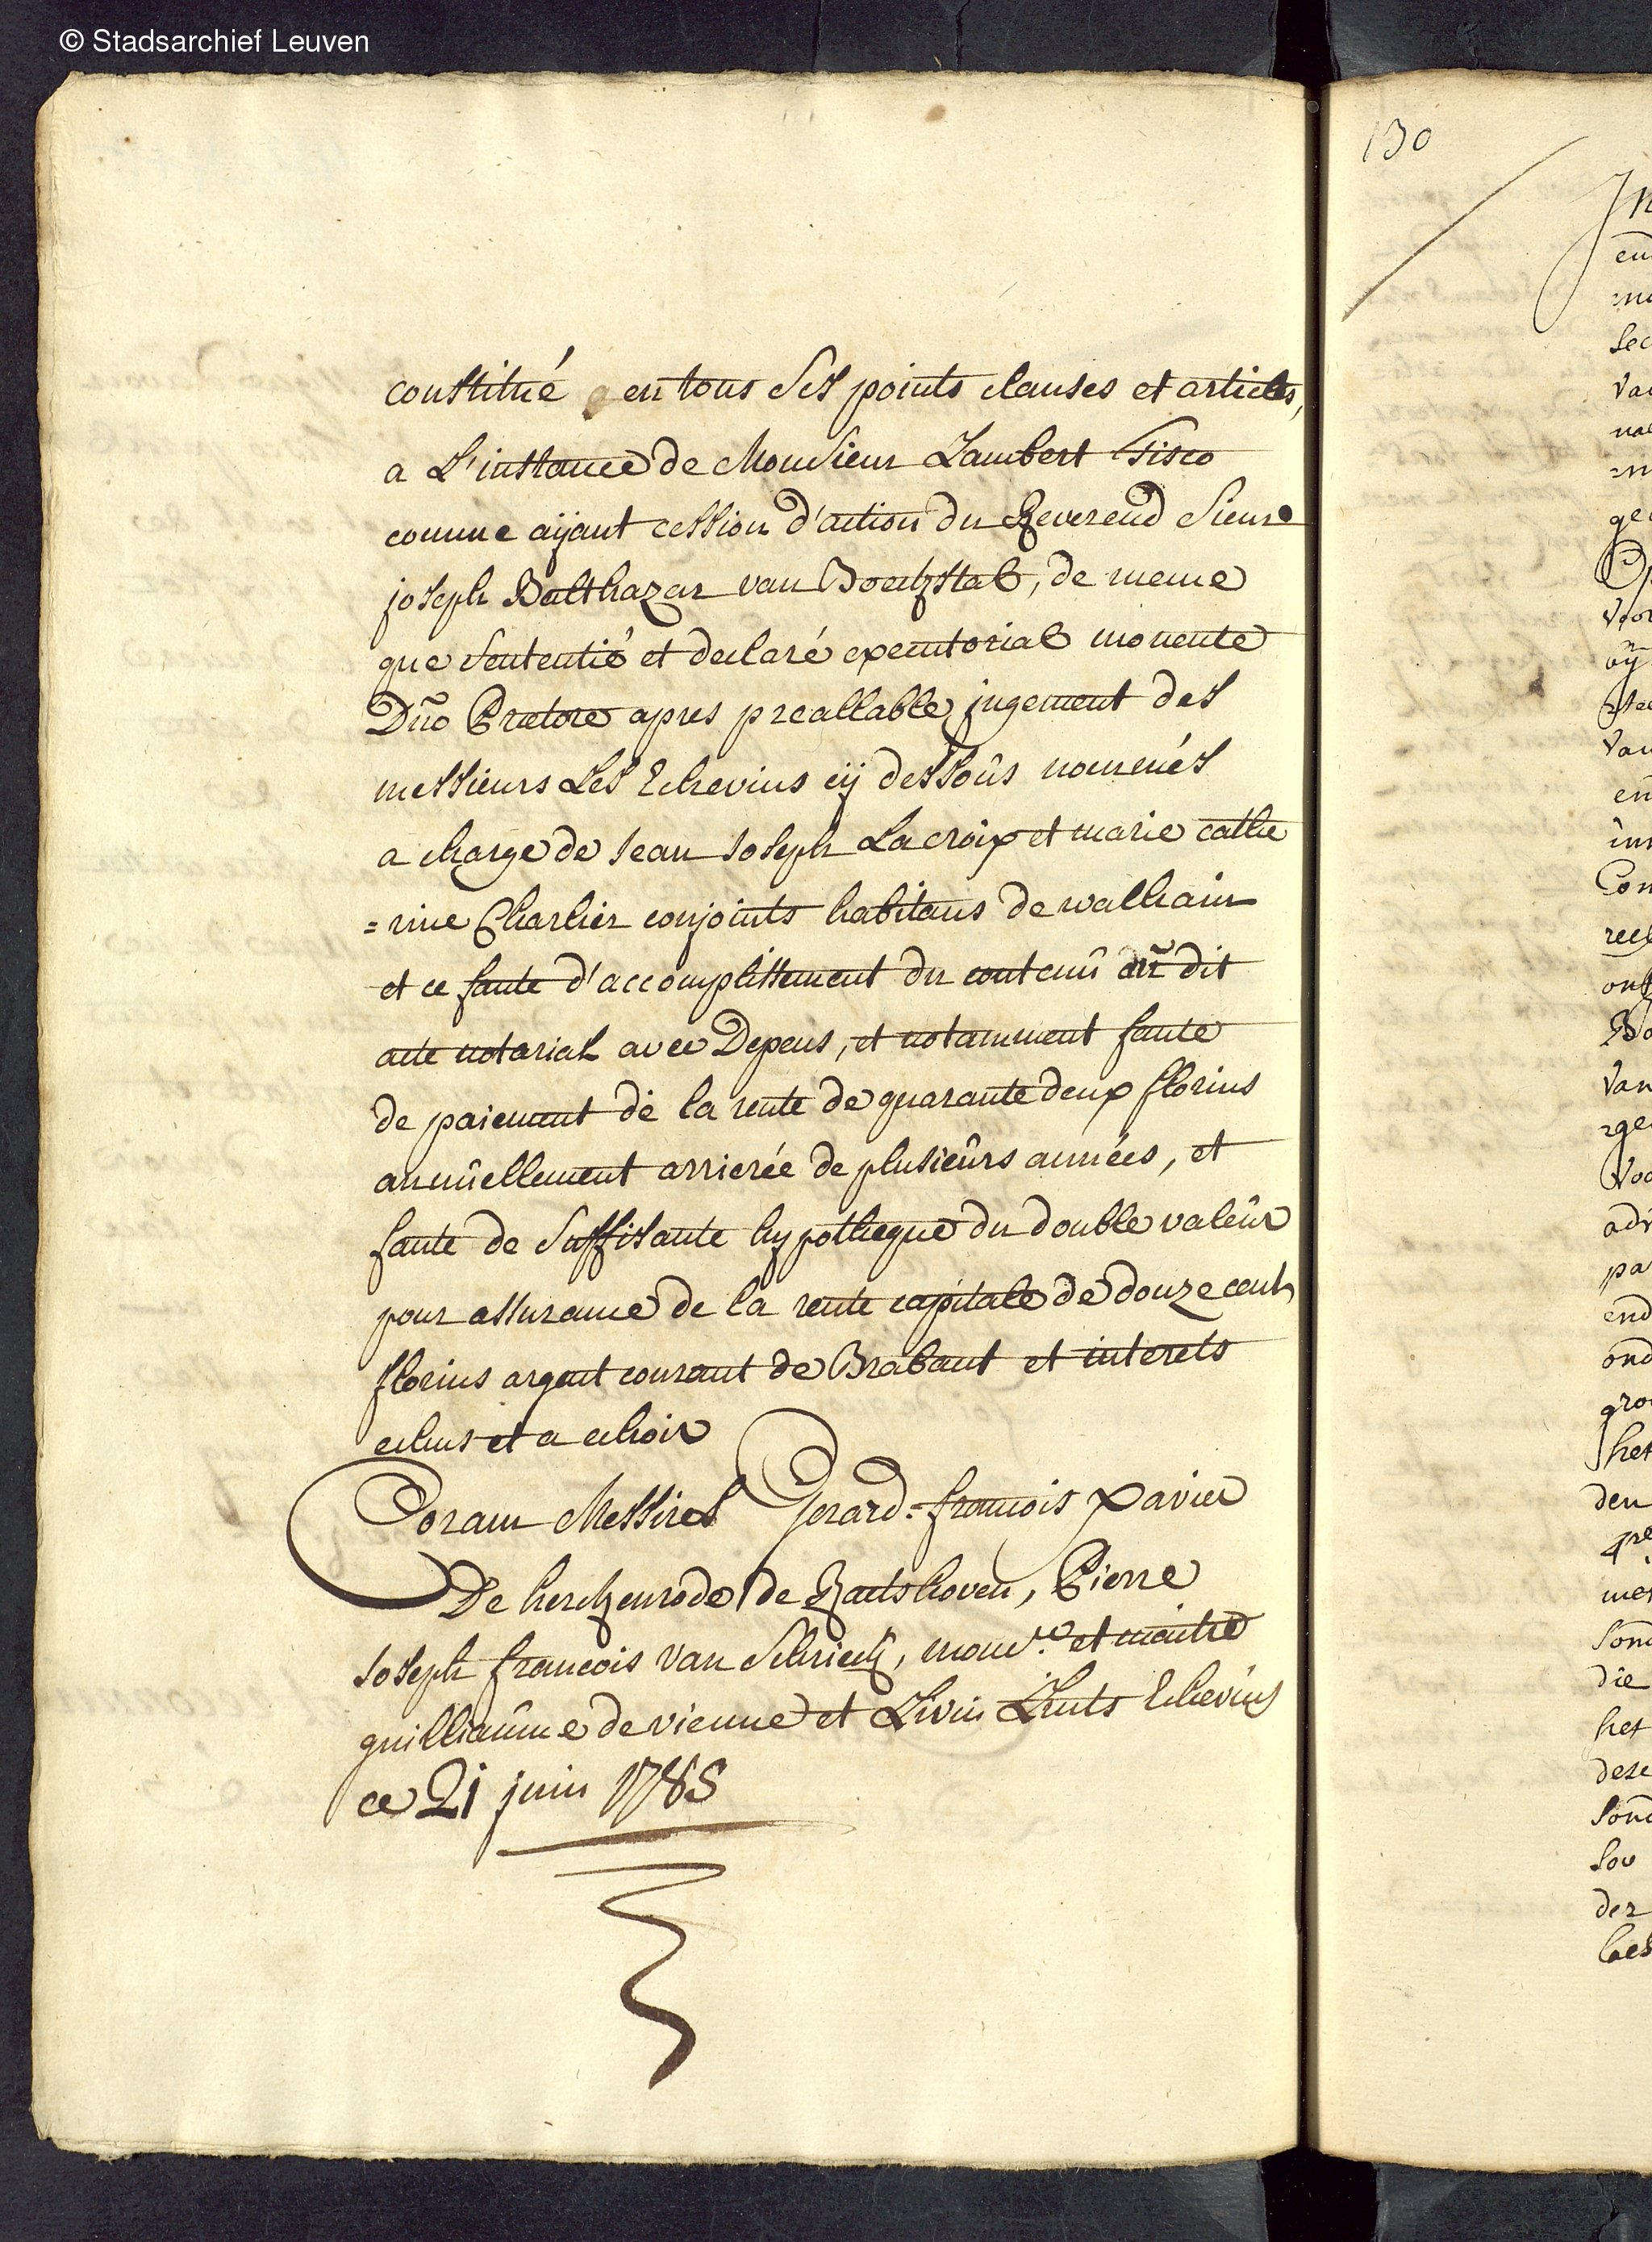 © Stadsarchief Leuven
constitué en tous ses points clauses et articles,
a L'instance de Monsieur Lambert Fisco
comme aÿant cession d'action du Reverend Sieur
joseph Balthazar van Boechstal, de meme
que sententié et declaré executorial monente
Dn̄o Prætore apres preallable jugement des
messieurs Les Echevins cÿ dessoûs nommés
a charge de Jean Joseph Lacroix et marie cathe
=rine Charlier conjoints habitans de walhain
et ce faute d'accomplissement du contenû dū dit
acte notarial avec Depens, et notamment faute
de paiement de la rente de quarante deux florins
annûellement arrierée de plusieûrs années, et
faute de suffisante hypotheque du double valeûr
pour assurance de la rente capitale de douze cents
florins argent courant de Brabant et interets
echus et a echoir
Coram Messires Gerard-francois Xavier
De herckenrode de Raetshoven, Pierre
Joseph francois van Schrieck, et maitre
guilliaûme de vienne et Livin Lints Echevins
ce 21 juin 1785
130
Jn
en
Sec
va
ge
voor
oÿ
van
en
Con
reel
Bo
van
voo
adv
pa
end
ond
gro
het
den
met
Sond
die
het
dese
Sond
Sou
der